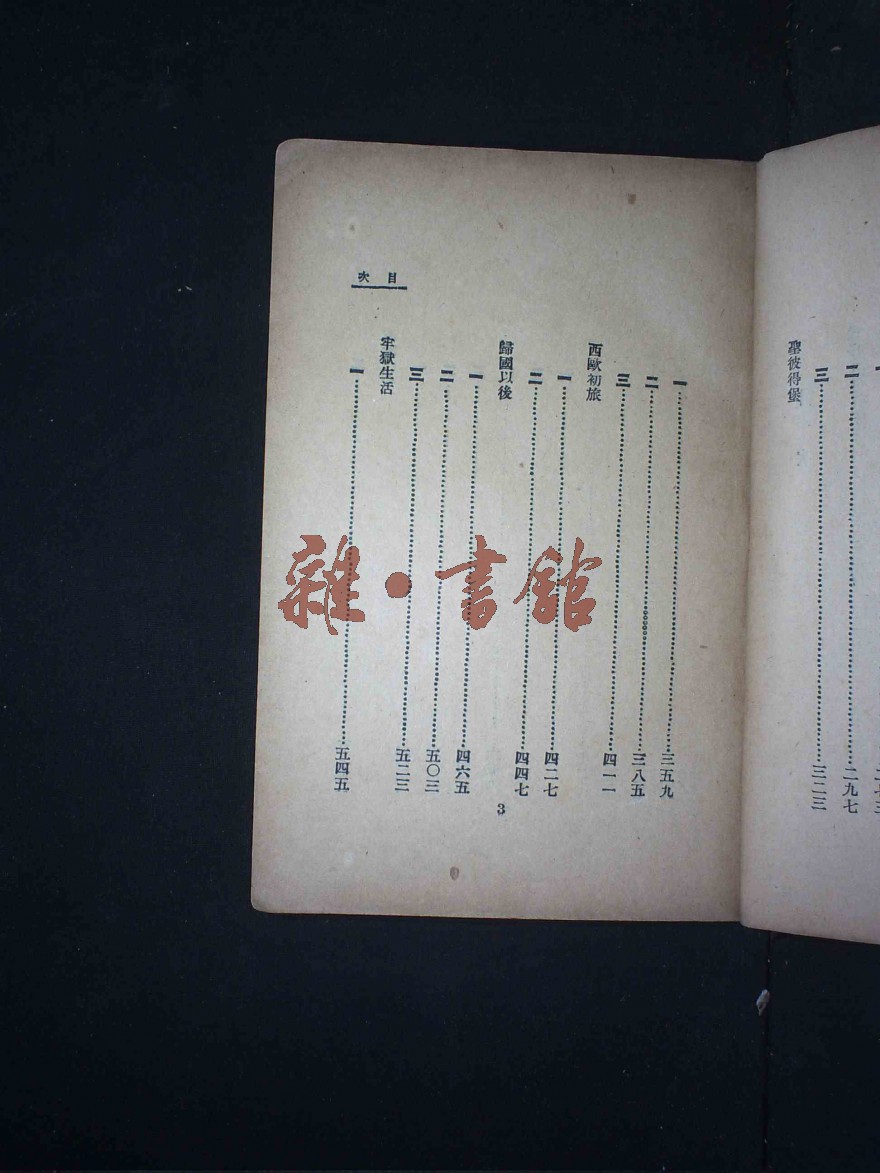 二……二九七
三……三二三
聖彼得堡
目次
一……三五九
二……三八五
三……四一一
西歐初旅
一……四二七
二……四四七
歸國以後
一……四六五
二……五〇三
三……五二三
牢獄生活
一……五四五
3
雜·書館